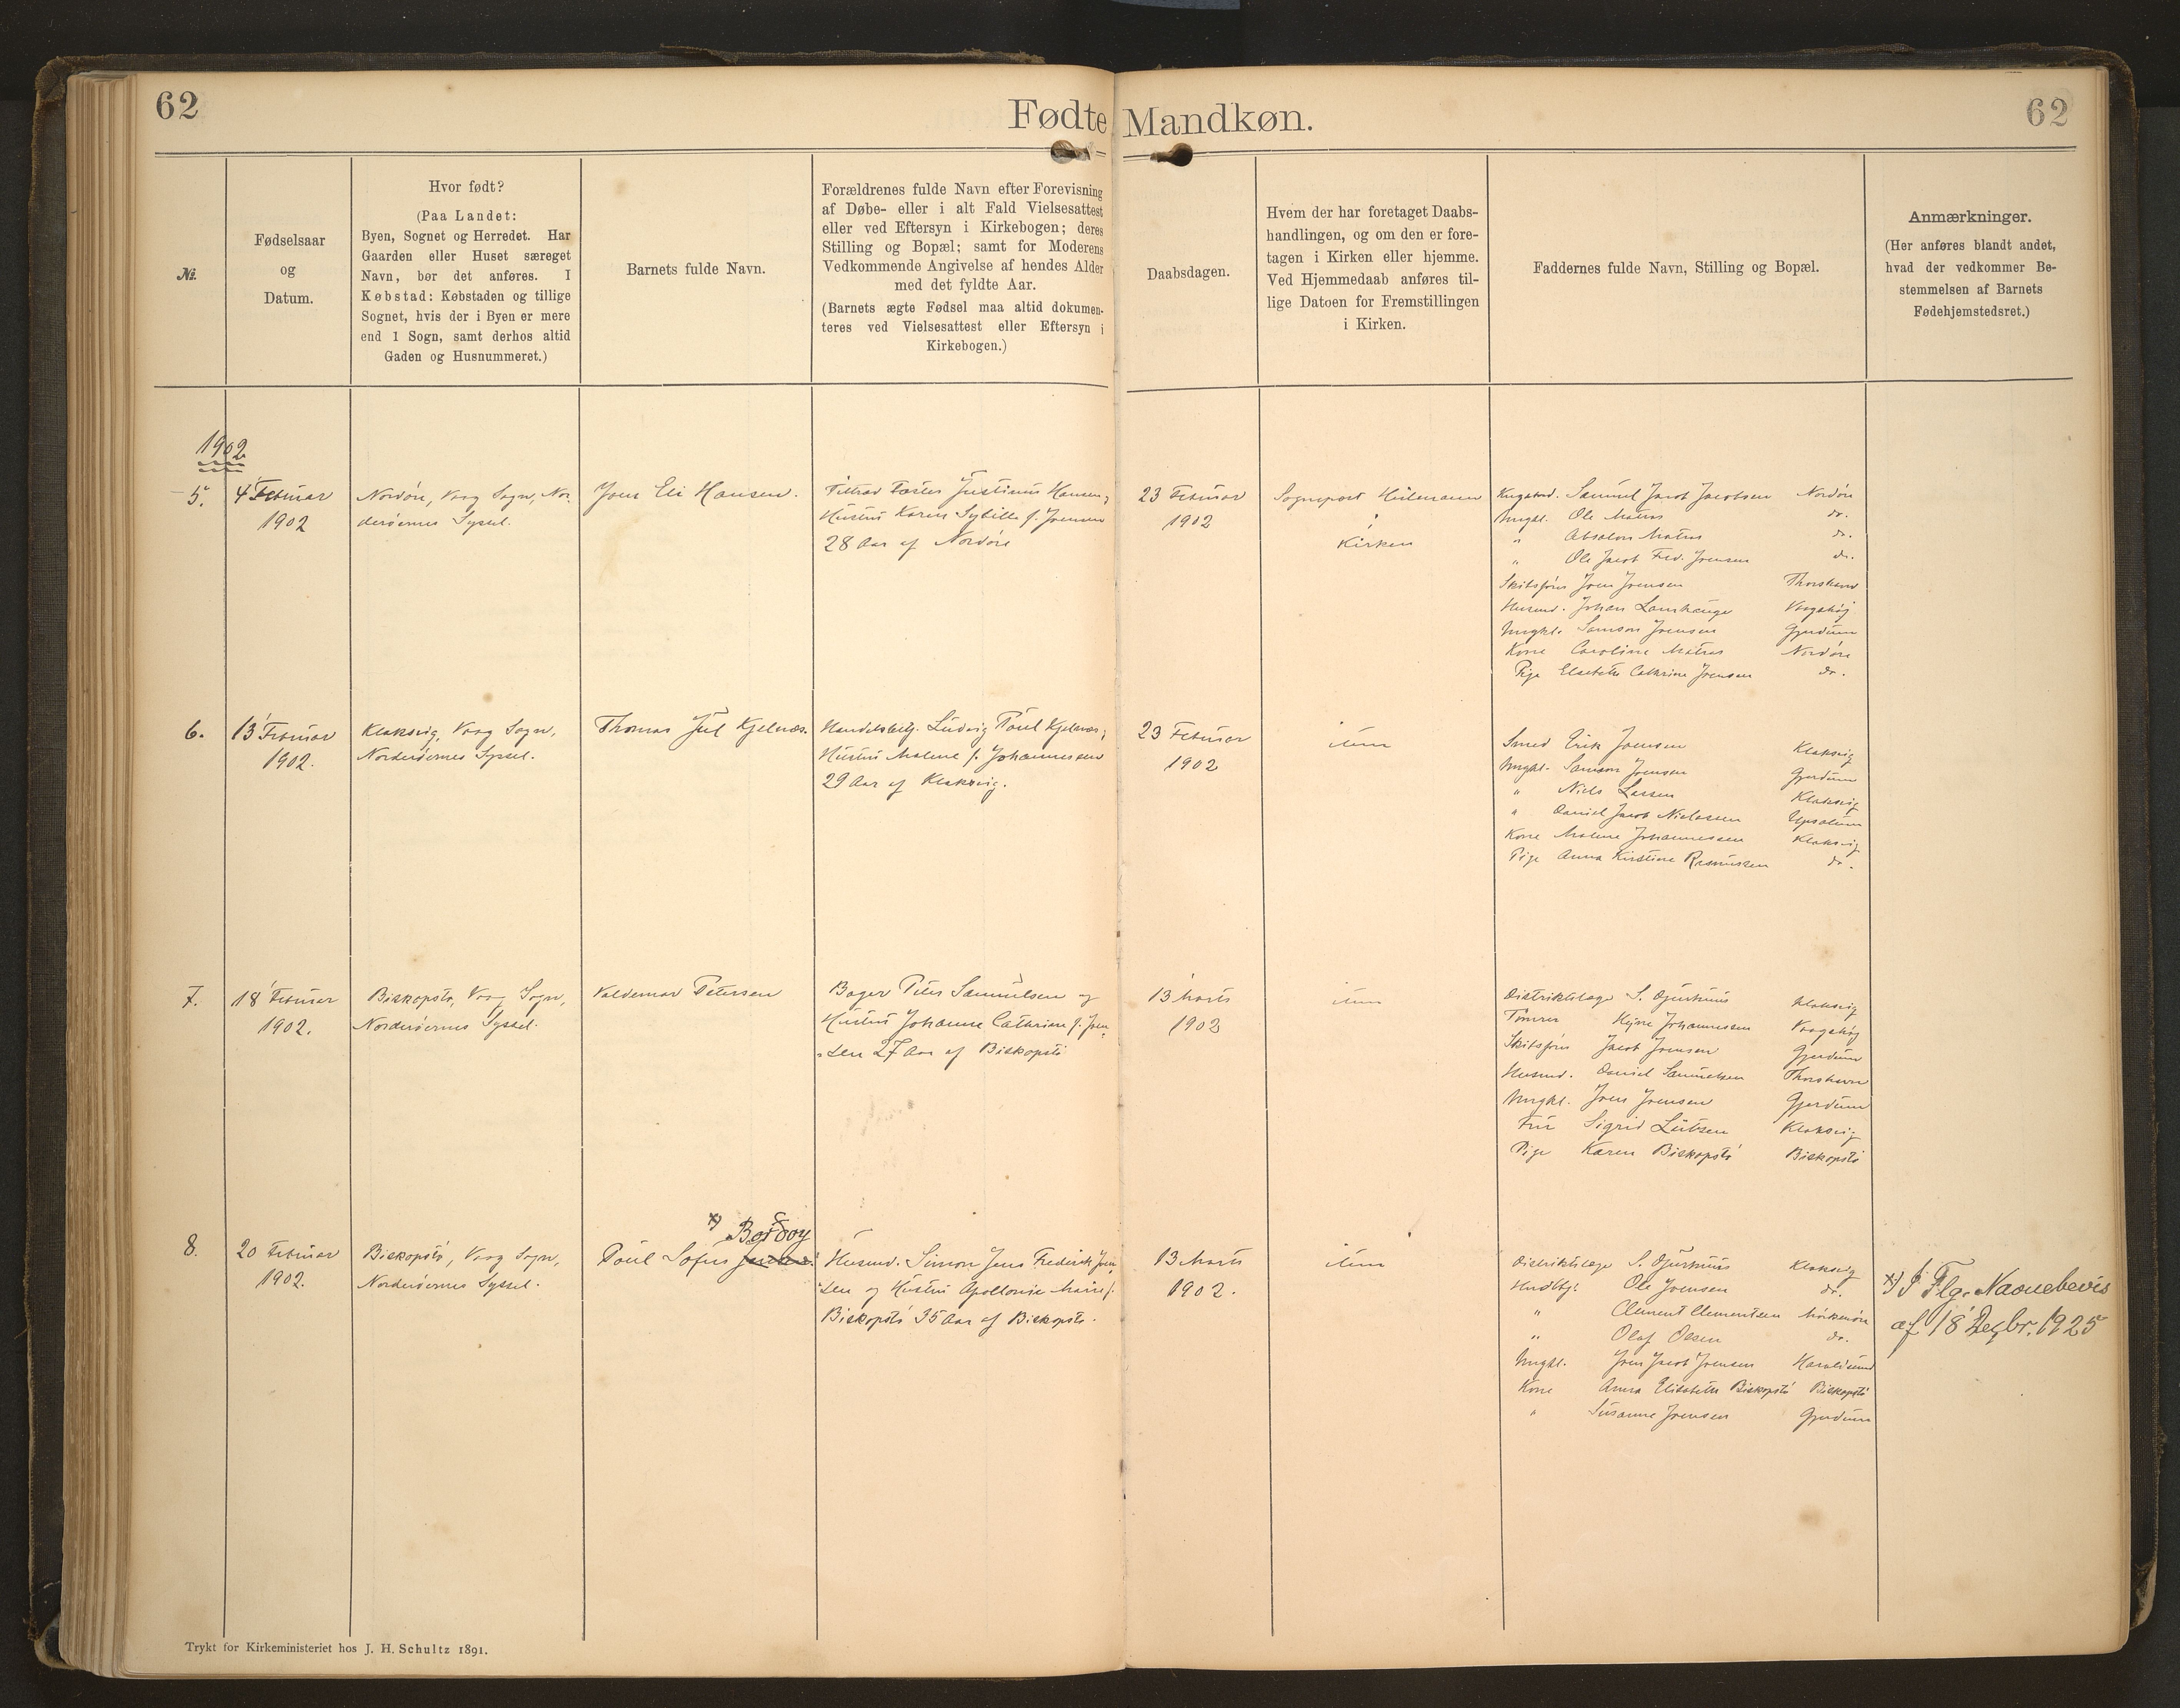 62
Fødte Mandkøn.
62
№
Fødselsaar
og
Datum.
Hvor født?
(Paa Landet:
Byen, Sognet og Herredet. Har
Gaarden eller Huset særeget
Navn, bør det anføres. I
Købstad: Købstaden og tillige
Sognet, hvis der i Byen er mere
end 1 Sogn, samt derhos altid
Gaden og Husnummeret.)
Barnets fulde Navn.
Forældrenes fulde Navn efter Forevisning
af Døbe- eller i alt Fald Vielsesattest
eller ved Eftersyn i Kirkebogen; deres
Stilling og Bopæl; samt for Moderens
Vedkommende Angivelse af hendes Alder
med det fyldte Aar.
(Barnets ægte Fødsel maa altid dokumen-
teres ved Vielsesattest eller Eftersyn i
Kirkebogen.)
Daabsdagen.
Hvem der har foretaget Daabs-
handlingen, og om den er fore-
tagen i Kirken eller hjemme.
Ved Hjemmedaab anføres til-
lige Datoen for Fremstillingen
i Kirken.
Faddernes fulde Navn, Stilling og Bopæl.
Anmærkninger.
(Her anføres blandt andet,
hvad der vedkommer Be-
stemmelsen af Barnets
Fødehjemstedsret.)
1902
5.
4 Februar
1902
Nordøre, Vaag Sogn, Nor-
derøernes Syssel.
Jons Eli Hansen.
Justinus Hansen,
Hustru Karen Sybille f. Joensen
28 Aar af Nordøre
23 Februar
1902
Sognepræst
i
Kirken
Samuel Jacob Jacobsen Nordøre
Ungkl. Ole Matras do.
" Absalon Matras do.
" Ole Jacob Fred. Joensen do.
Joen Joensen Thorshavn
Husmd. Johan Lamhauge Vaagshøj
Ungkl. Samson Joensen Gjerdum
Kone Caroline Matras Nordøre
Pige Elsebeth Cathrine Joensen do.
6.
13 Februar
1902.
Klaksvig, Vaag Sogn,
Norderøernes Syssel.
Thomas Juul Kjelnæs.
Handelsbetj. Ludvig Poul Kjelnæs,
Hustru Malene f. Johannesen
29 Aar af Klaksvig.
23 Februar
1902
item
Smed Erik Joensen Klaksvig
Ungkl. Samson Joensen Gjerdum
" Niels Larsen Klaksvig
" Daniel Jacob Niclasen
Kone Malene Johannessen Klaksvig
Pige Anna Kirstine Rasmussen do.
7.
18 Februar
1902.
Biskopstø, Vaag Sogn,
Norderøernes Syssel.
Valdemar Petersen
Bager Peter Samuelsen og
Hustru Johanne Cathrine f. Joen-
sen 27 Aar af Biskopstø
13 Marts
1902
item
Distriktslæge S. Djurhuus Klaksvig
Tømrer Johannessen Vaagshøj
Jacob Joensen Gjerdum
Husmd. Daniel Samuelsen Thorshavn
Ungkl. Joen Joensen Gjerdum
Fru Sigrid Lützen Klaksvig
Pige Karen Biskopstø Biskopstø
8.
20 Februar
1902.
Biskopstø, Vaag Sogn,
Norderøernes Syssel.
x) Borðoy
Poul Sofus
Husmd. Simon Jens Frederik Joen-
sen og Hustru Apollonie Marie f.
Biskopstø 35 Aar af Biskopstø.
13 Marts
1902.
item
Distriktslæge S. Djurhuus Klaksvig
Ole Joensen do.
" Clement Clementsen
" Olaf Olsen do.
Ungkl. Joen Jacob Joensen Haraldsund
Kone Anna Elisabeth Biskopstø Biskopstø
" Susanne Joensen Gjerdum
x) I Flg. Navnebevis
af 18 Dezbr. 1925
Trykt for Kirkeministeriet hos J. H. Schultz 1891.